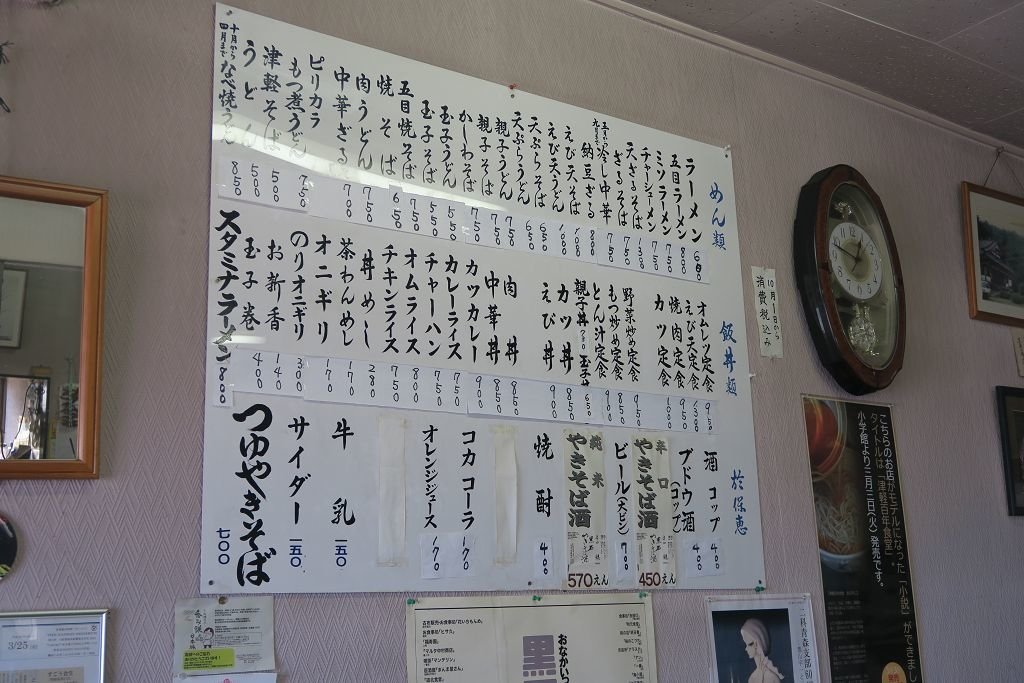 めん類
ラーメン 600
五目ラーメン 800
ミソラーメン 750
チャーシューメン 750
天ざるそば
ざるそば 750
冷し中華 750
納豆ざる 800
えび天そば 1000
えび天うどん 1000
天ぷらそば 650
天ぷらうどん 650
親子うどん 750
親子そば 750
かしわそば
玉子うどん 550
玉子そば 550
五目焼そば 750
焼そば 650
肉うどん 750
中華ざる 700
ピリカラ
もつ煮うどん 750
津軽そば 500
うどん 500
十月から四月まで なべ焼うどん 850
飯丼類
オムレツ定食 950
えび天定食 1300
焼肉定食 950
カツ定食 1000
野菜炒め定食 900
もつ炒め定食 850
とん汁定食 900
親子丼 玉子丼 650
カツ丼 850
えび丼 900
肉丼 850
中華丼 850
カツカレー 900
カレーライス 750
チャーハン 750
オムライス 800
チキンライス 750
丼めし 280
茶わんめし 170
オニギリ 170
のりオニギリ 300
お新香 140
玉子巻 400
スタミナラーメン 800
於保恵
酒 コップ 400
ブドウ酒(コップ) 400
辛口 やきそば酒 450えん
ビール(大ビン) 700
純米 やきそば酒 570えん
焼酎 400
コカコーラ 170
オレンジジュース 170
牛乳 一五〇
サイダー 一五〇
つゆやきそば 七〇〇
10月1日から
消費税込み
こちらのお店がモデルになった「小説」ができまし
タイトルは「津軽百年食堂」。
小学館より三月三日(火)発売です。
3/25
おなかいっ
黒
二科青森支部